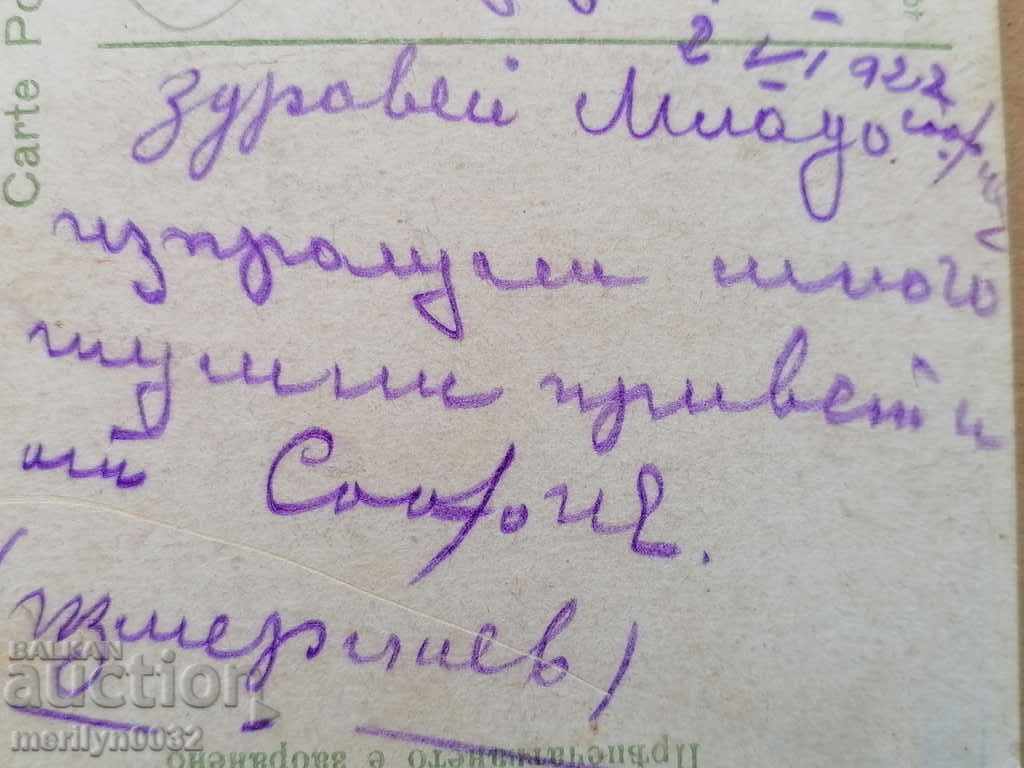 Carte Po
2 VI 1922
Здравей Младо
изпращам много
шумни привети
от София.
BALKAN
auction
merilyn0032
Прѣпечатването е забранено